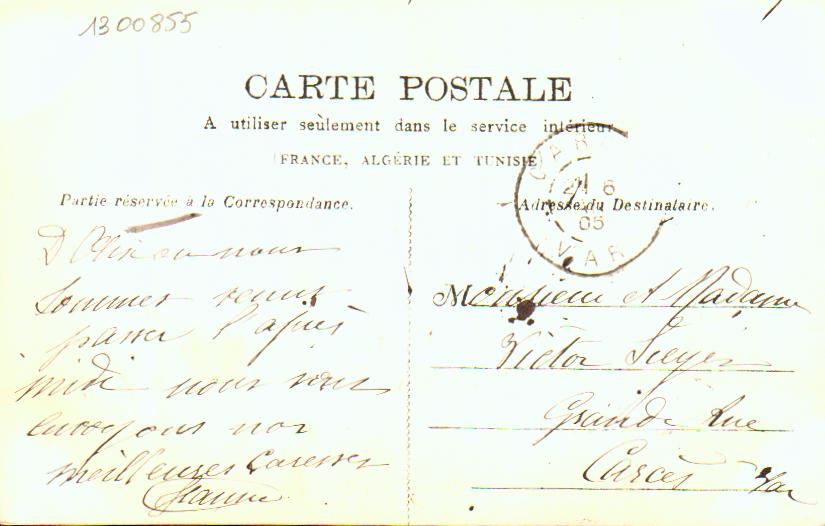 1300855
CARTE POSTALE
A utiliser seulement dans le service intérieur
(FRANCE, ALGÉRIE ET TUNISIE)
Partie réservée à la Correspondance.
Adresse du Destinataire.
CAR
6
05
VAR
D' où nous
sommes venus
passer l'après
midi nous vous
envoyons nos
meilleures caresses
Monsieur et Madame
Victor Sieyes
Grande Rue
Carcès Var